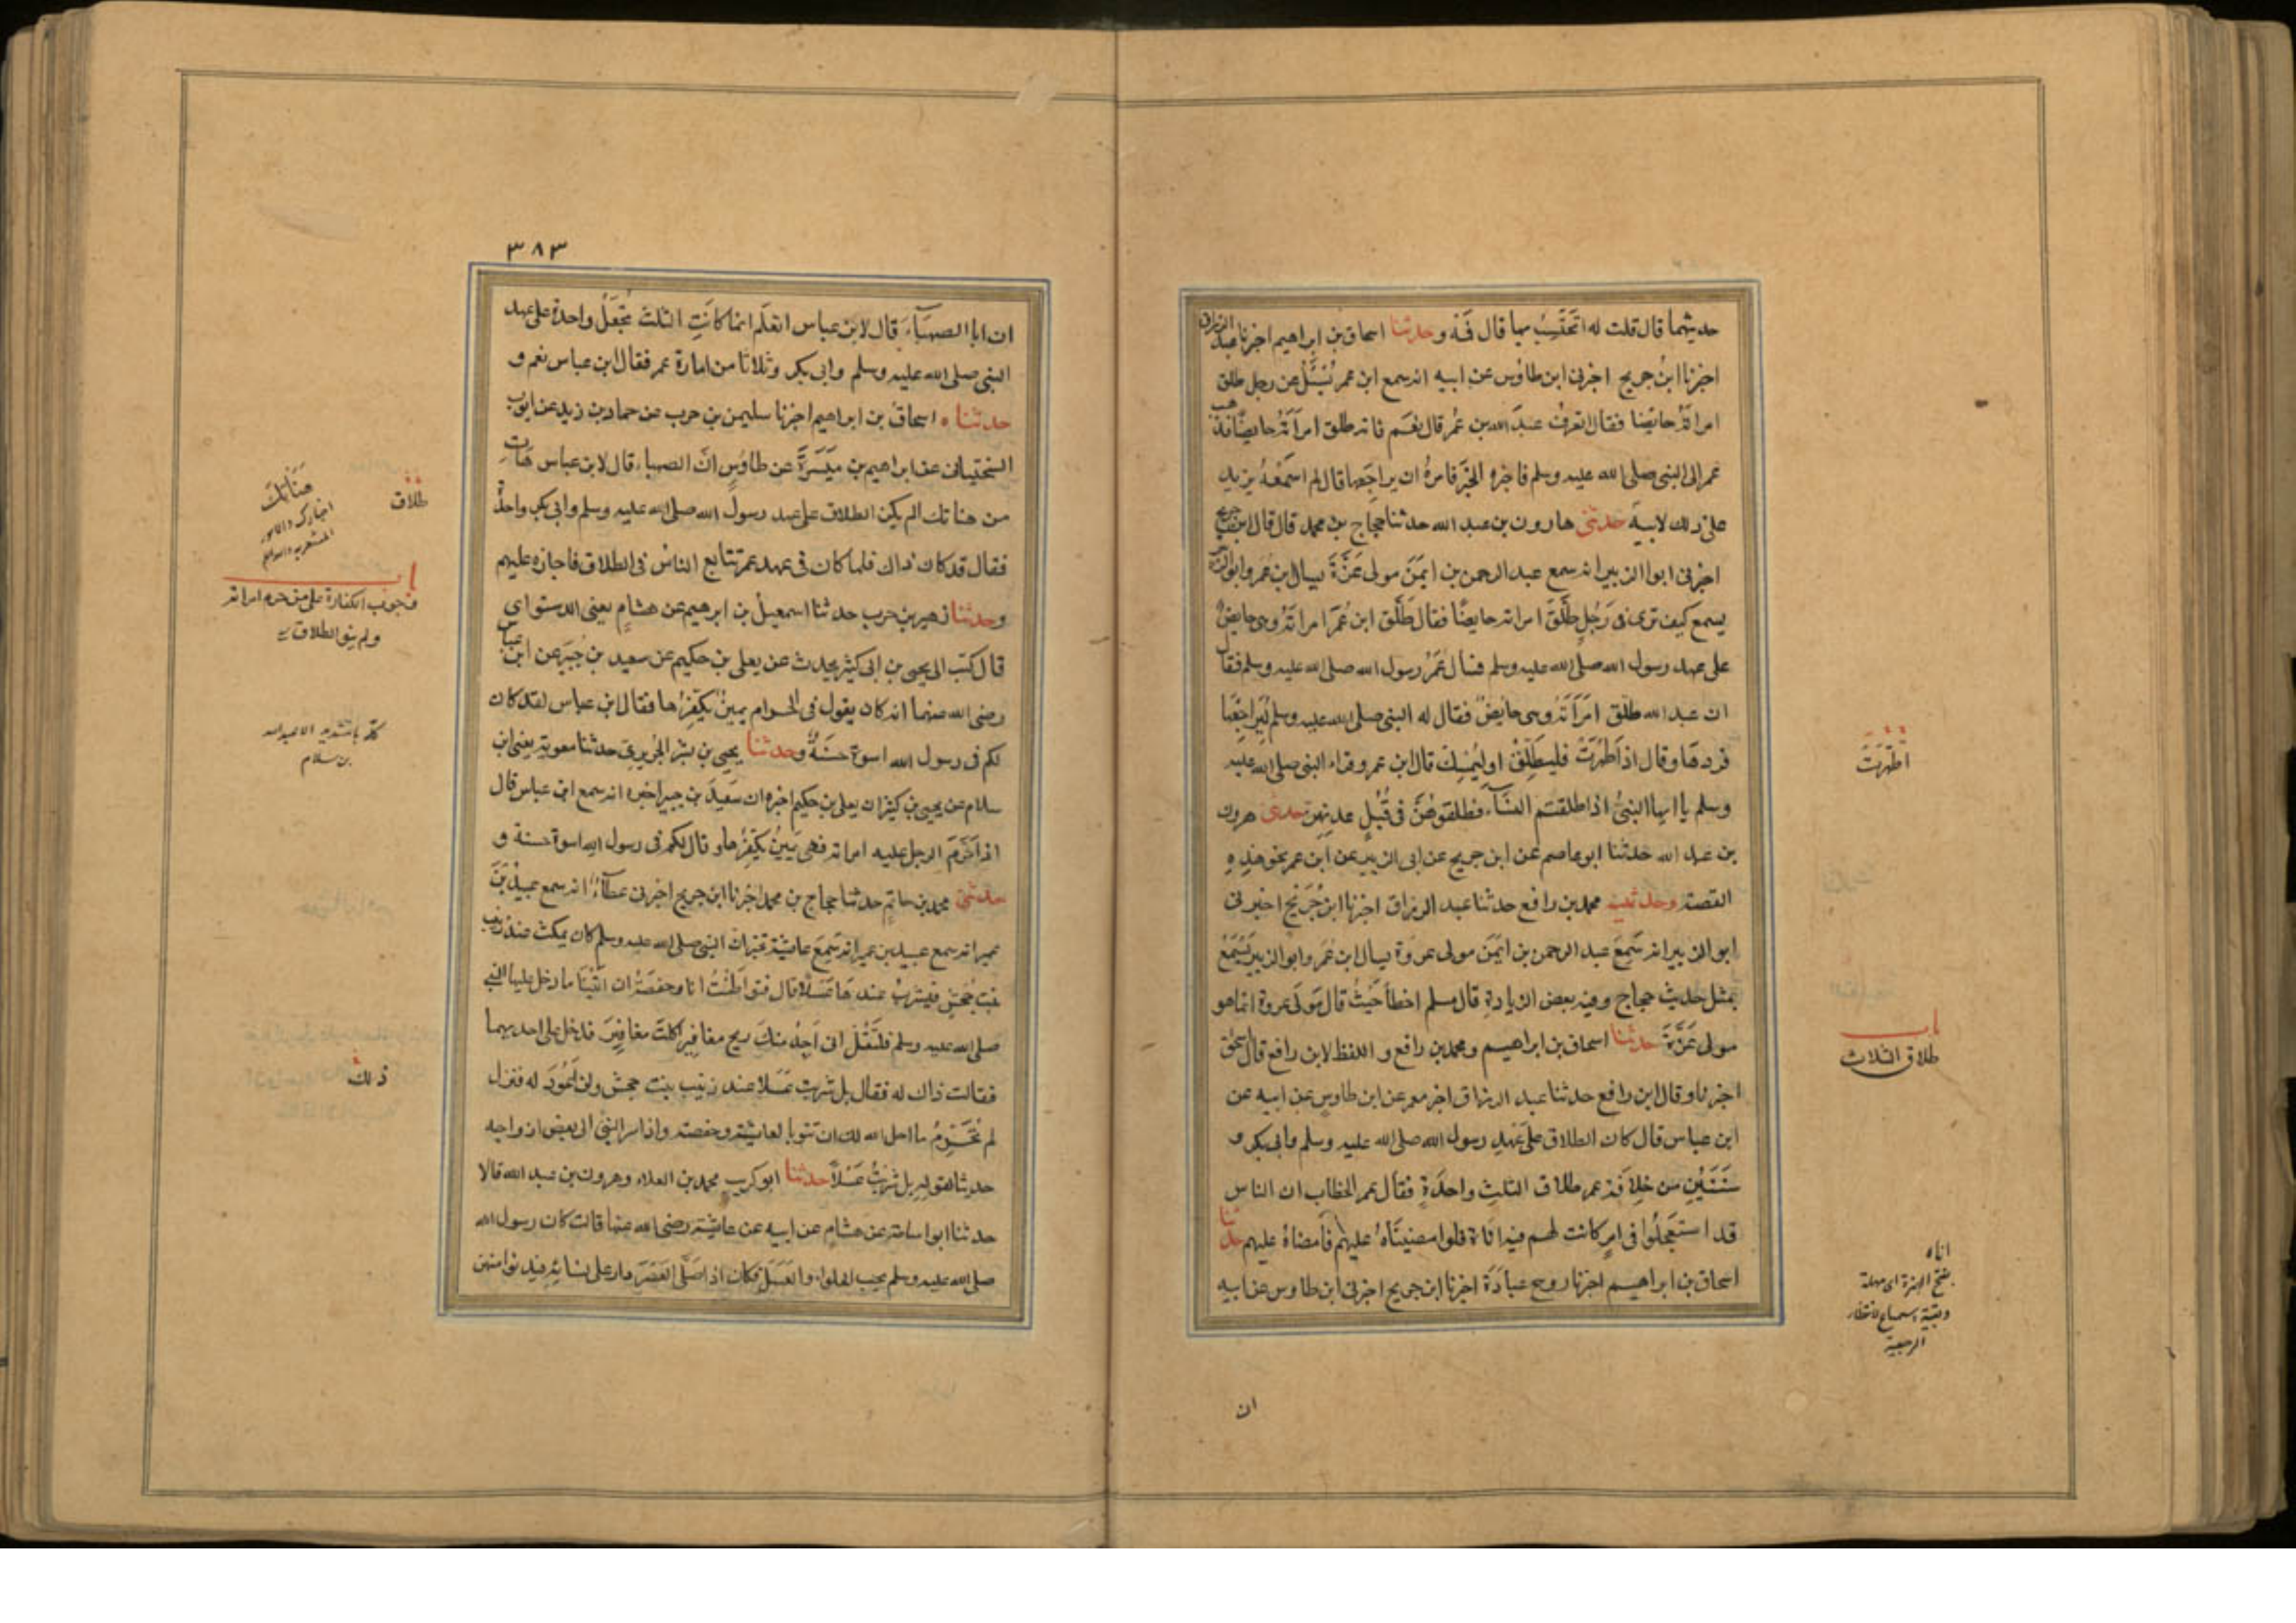 حديثهما قال قلت له اتحتسب بها قال فمه وحدثنا اسحاق بن ابراهيم اخبرنا عبد الرزاق
اخبرنا ابن جريج اخبرنى ابن طاؤس عن ابيه انه سمع ابن عمر يُسئل عن رجل طلق
امراته حايضا فقال اتعرف عبد الله بن عمر قال نعم فانه طلق امراته حايضا فذهب
عمر إلى النبى صلى الله عليه وسلم فاخبره الخبر فامره ان يراجعها قال لم اسمعه يزيد
على ذلك لابيه حدثنى هارون بن عبد الله حدثنا حجاج بن محمد قال قال ابن جريج
اخبرنى ابوا الزبير انه سمع عبد الرحمن بن ايمن مولى عزة يسال ابن عمر وابو الزبير
يسمع كيف ترى فى رجل طلق امراته حايضًا فقال طلق ابن عمر امراته وهى حايض
على عهد رسول الله صلى الله عليه وسلم فسال عمر رسول الله صلى الله عليه وسلم فقال
ان عبد الله طلق امراته وهى حايض فقال له النبى صلى الله عليه وسلم ليراجعها
فردها وقال اذا طهرت فليطلق او ليمسك قال ابن عمر وقراء النبى صلى الله عليه
وسلم يا ايها النبى اذا طلقتم النساء فطلقوهن فى قبل عدتهن حدثنى هرون
بن عبد الله حدثنا ابو عاصم عن ابن جريج عن ابى الزبير عن ابن عمر نحو هذه
القصة وحدثنيه محمد بن رافع حدثنا عبد الرزاق اخبرنا ابن جريج اخبرنى
ابو الزبير انه سمع عبد الرحمن بن ايمن مولى عروة يسال ابن عمر وابو الزبير يسمع
بمثل حديث حجاج وفيه بعض الزيادة قال مسلم اخطأ حيث قال مولى عروة انما هو
مولى عزة حدثنا اسحاق بن ابراهيم ومحمد بن رافع و اللفظ لابن رافع قال اسحق
اخبرنا وقال ابن رافع حدثنا عبد الرزاق اخبر معمر عن ابن طاوس عن ابيه عن
ابن عباس قال كان الطلاق على عهد رسول الله صلى الله عليه وسلم وابى بكر و
سنتين من خلافة عمر طلاق الثلث واحدة فقال عمر الخطاب ان الناس
قد استعجلوا فى امر كانت لهم فيه اناة فلوا مضيناه عليهم فامضاه عليهم حدثنا
اسحاق بن ابراهيم اخبرنا روح عبادة اخبرنا ابن جريج اخبرنى ابن طاوس عن ابيه
ان
اطهرت
باب
طلاق الثلاث
اناه
بفتح الهمزة اى مهلة
وبقية استمتاع لانتظار
الرجعة
٣٨٣
ان ابا الصهباء قال لابن عباس اتعلم انما كانت الثلث تجعل واحدة على عهد
النبى صلى الله عليه وسلم وابى بكر وثلاثا من امارة عمر فقال ابن عباس نعم و
حدثنا اسحاق بن ابراهيم اخبرنا سليمن بن حرب عن حماد بن زيد عن ايوب
السختيانى عن ابراهيم بن ميسرة عن طاوس ان الصهباء قال لابن عباس هات
من هناتك الم يكن الطلاق على عهد رسول الله صلى الله عليه وسلم وابى بكر واحدة
فقال قد كان ذاك فلما كان فى عهد عمر تتايع الناس فى الطلاق فاجازه عليهم
وحدثنا زهير بن حرب حدثنا اسمعيل بن ابرهيم عن هشام يعنى الدستواى
قال كتب الى يحيى بن ابى كثير يحدث عن يعلى بن حكيم عن سعيد بن جبير عن ابن عباس
رضى الله عنهما انه كان يقول فى الحرام يمين يكفرها فقال ابن عباس لقد كان
لكم فى رسول الله اسوة حسنة وحدثنا يحيى بن بشر الجريرى حدثنا معوية يعنى ابن
سلام عن يحيى بن كثير ان يعلى بن حكيم اخبره ان سعيد بن جبير اخبره انه سمع ابن عباس قال
اذا حرم الرجل عليه امراته فهى يمين يكفرها وقال لكم فى رسول الله اسوة حسنة و
حدثنى محمد بن حاتم حدثنا حجاج بن محمد اخبرنا ابن جريج اخبرنى عطاء انه سمع عبيد بن
عمير انه سمع عبيد بن عمير انه سمع عايشة تخبر ان النبى صلى الله عليه وسلم كان يمكث عند زينب
بنت جحش فيشرب عندها عسلا قال فتواطئت انا وحفصة ان ايتنا ما دخل عليها النبى
صلى الله عليه وسلم فلتقل انى اجد منك ريح مغافير اكلت مغافير فدخل على احديهما
فقالت ذاك له فقال بل شربت عسلا عند زينب بنت جحش ولن اعود له فنزل
لم تحرم ما احل الله لك ان تتوبا لعايشة وحفصة واذ اسر النبى الى بعض ازواجه
حديثا لقوله بل شربت عسلا حدثنا ابو كريب محمد بن العلاء وهرون بن عبد الله قالا
حدثنا ابوا سامة عن هشام عن ابيه عن عايشة رضى الله عنها قالت كان رسول الله
صلى الله عليه وسلم يحب الحلواء والعسل فكان اذا صلى العصر دار على نسائه فيدنوا منهن
طلاق
هناتك
اخبارك
باب
وجوب الكفارة على من حرم امراته
ولم ينو الطلاق
بن سلام
ذلك